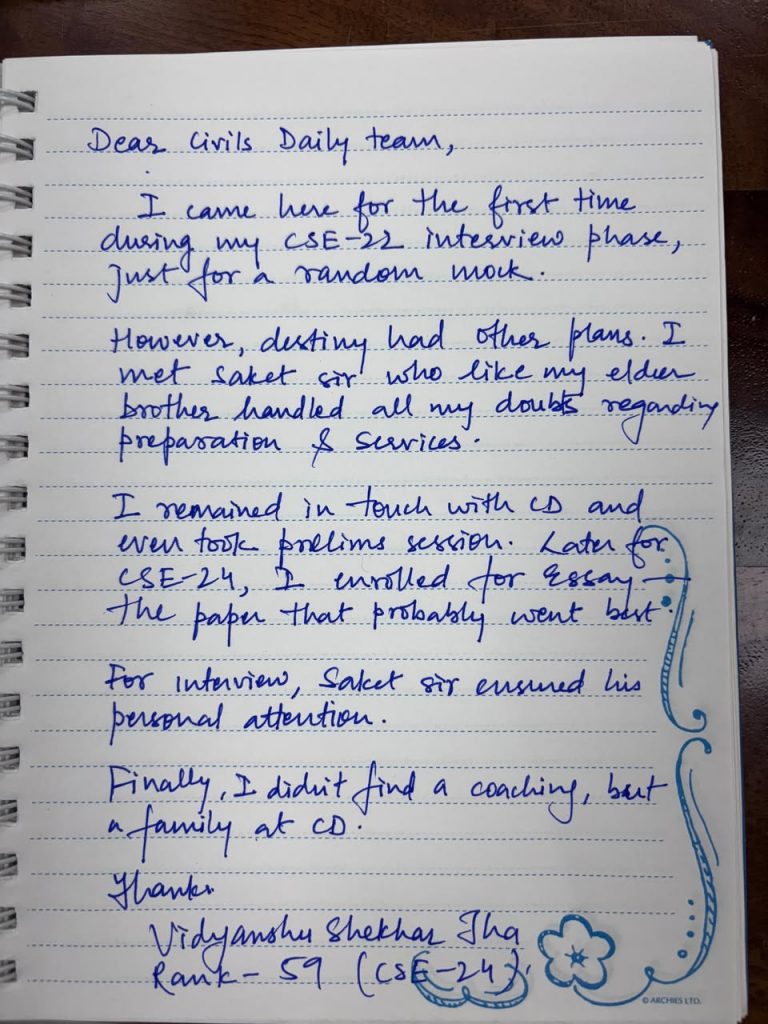 Dear Civils Daily team,
I came here for the first time
during my CSE-22 interview phase,
just for a random mock.
However, destiny had other plans. I
met Saket sir who like my elder
brother handled all my doubts regarding
preparation & services.
I remained in touch with CD and
even took prelims session. Later for
CSE-24, I enrolled for Essay —
the paper that probably went best.
For interview, Saket sir ensured his
personal attention.
Finally, I didn't find a coaching, but
a family at CD.
Thanks.
Vidyanshu Shekhar Jha
Rank - 59 (CSE-24).
© ARCHIES LTD.